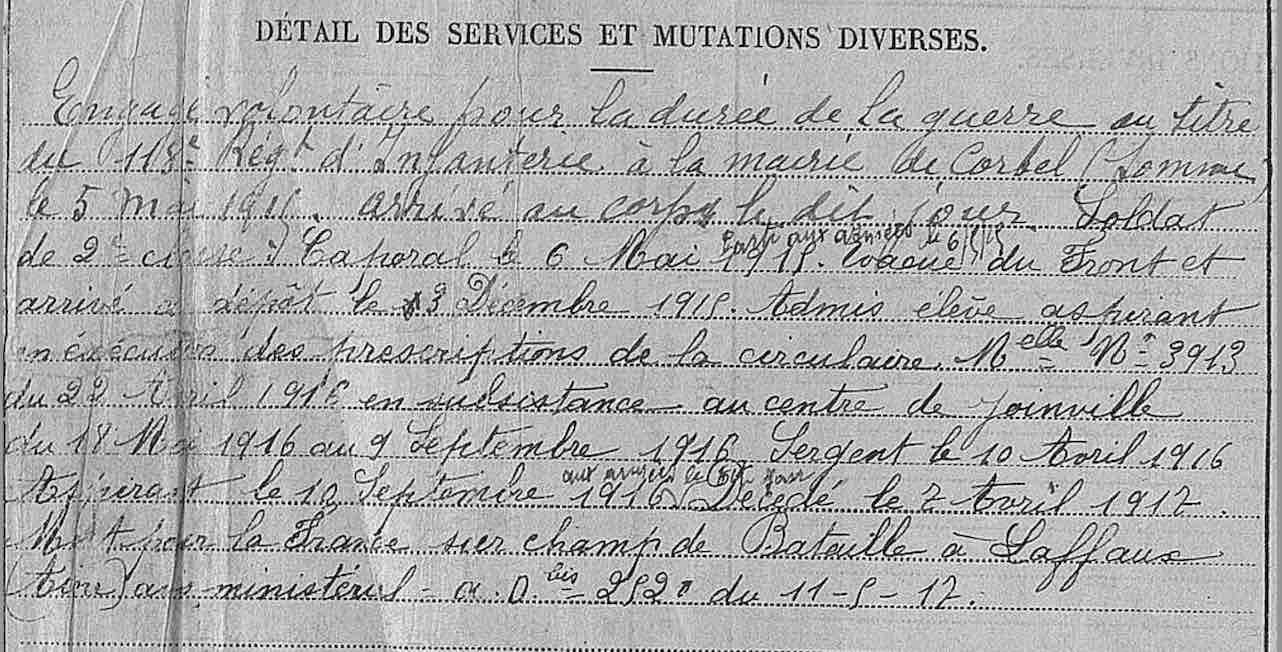 DÉTAIL DES SERVICES ET MUTATIONS DIVERSES.
Engagé volontaire pour la durée de la guerre au titre
du Régt d'Infanterie à la mairie de Corbel (Somme)
le 5 Mai arrivé au corps le dit jour Soldat
parti aux armées le
de 2e classe Caporal le 6 Mai 1915. évacué du Front et
arrivé dépôt le Décembre 1915. Admis élève aspirant
en exécution des prescriptions de la circulaire Melle No 3913
du 22 Avril 1916 en subsistance au centre de Joinville
du 18 Mai 1916 au 9 Septembre 1916. Sergent le 10 Avril 1916
aux armées le dit jour
Aspirant le 10 Septembre 1916 Décédé le 7 Avril 1917.
Mort pour la France sur champ de Bataille à Laffaux
(Aisne) avis ministériel - bis 2520 du 11-5-17.